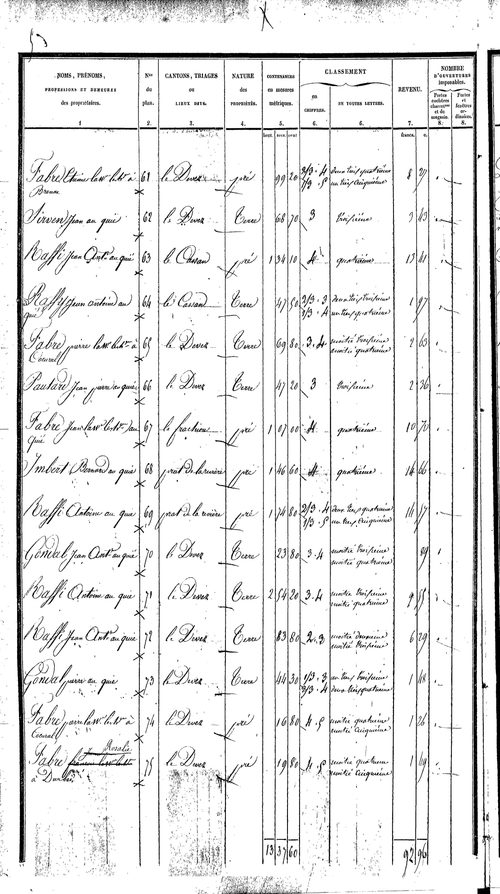 NOMS, PRÉNOMS, PROFESSIONS ET DEMEURES des propriétaires. 1 | Nos du plan. 2. | CANTONS, TRIAGES ou LIEUX DITS. 3. | NATURE des PROPRIÉTÉS. 4. | CONTENANCES en mesures métriques. 5. | CLASSEMENT en CHIFFRES. 6. | EN TOUTES LETTRES. 6. | REVENU. 7. | NOMBRE D'OUVERTURES imposables. Portes cochères charretières et de magasin. 8. | Portes et fenêtres ordinaires. 8.
hect. ares cent. | francs. c.
Fabre 61 le Devez pré 99 20 2/3 . 4 deux tiers quatrième 8 27
1/3 . 5 un tiers cinquième
Sirven Jean au quié 62 le Devez Terre 68 70 3 troisième 3 43
Raffi Jean Ante au quié 63 le Cassan pré 1 34 10 4 quatrième 13 41
Raffy Jean antoine au 64 le Cassan Terre 47 50 2/3 . 3 deux tiers troisième 1 97
quié 1/3 . 4 un tiers quatrième
Fabre pierre 65 le Devez Terre 69 80 3 . 4 moitié troisième 2 63
moitié quatrième
Pautard Jean pierre au quié 66 le Devez Terre 47 20 3 troisième 2 36
Fabre Jean 67 la fraction pré 1 07 00 4 quatrième 10 70
quié
Imbert Bernard au quié 68 prat de la rivière pré 1 46 60 4 quatrième 14 66
Raffi Antoine au quié 69 prat de la rivière pré 1 74 80 2/3 . 4 deux tiers quatrième 14 57
1/3 . 5 un tiers cinquième
Gondal Jean Ante au quié 70 le Devez Terre 23 80 3 . 4 moitié troisième 89
moitié quatrième
Raffi Antoine au quié 71 le Devez Terre 2 54 20 3 . 4 moitié troisième 9 55
moitié quatrième
Raffi Jean Ante au quié 72 le Devez Terre 83 80 2 . 3 moitié deuxième 6 29
moitié troisième
Gondal pierre au quié 73 le Devez Terre 44 30 1/3 . 3 un tiers troisième 1 48
2/3 . 4 deux tiers quatrième
Fabre pierre 74 le Devez pré 16 80 4 . 5 moitié quatrième 1 26
moitié cinquième
Rosalie
Fabre 75 le Devez pré 19 80 4 . 5 moitié quatrième 1 49
moitié cinquième
13 37 60 92 96